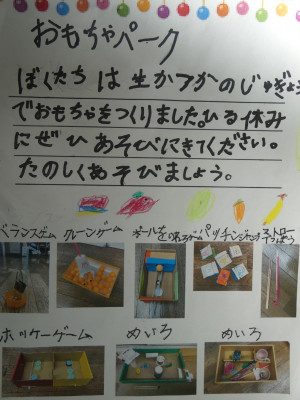 おもちゃパーク
ぼくたちは生かつかのじゅぎょう
でおもちゃをつくりました。ひる休み
にぜひあそびにきてください。
たのしくあそびましょう。
バランスゲーム クレーンゲーム パッチンジャンプ ストロー
ホッケーゲーム めいろ めいろ